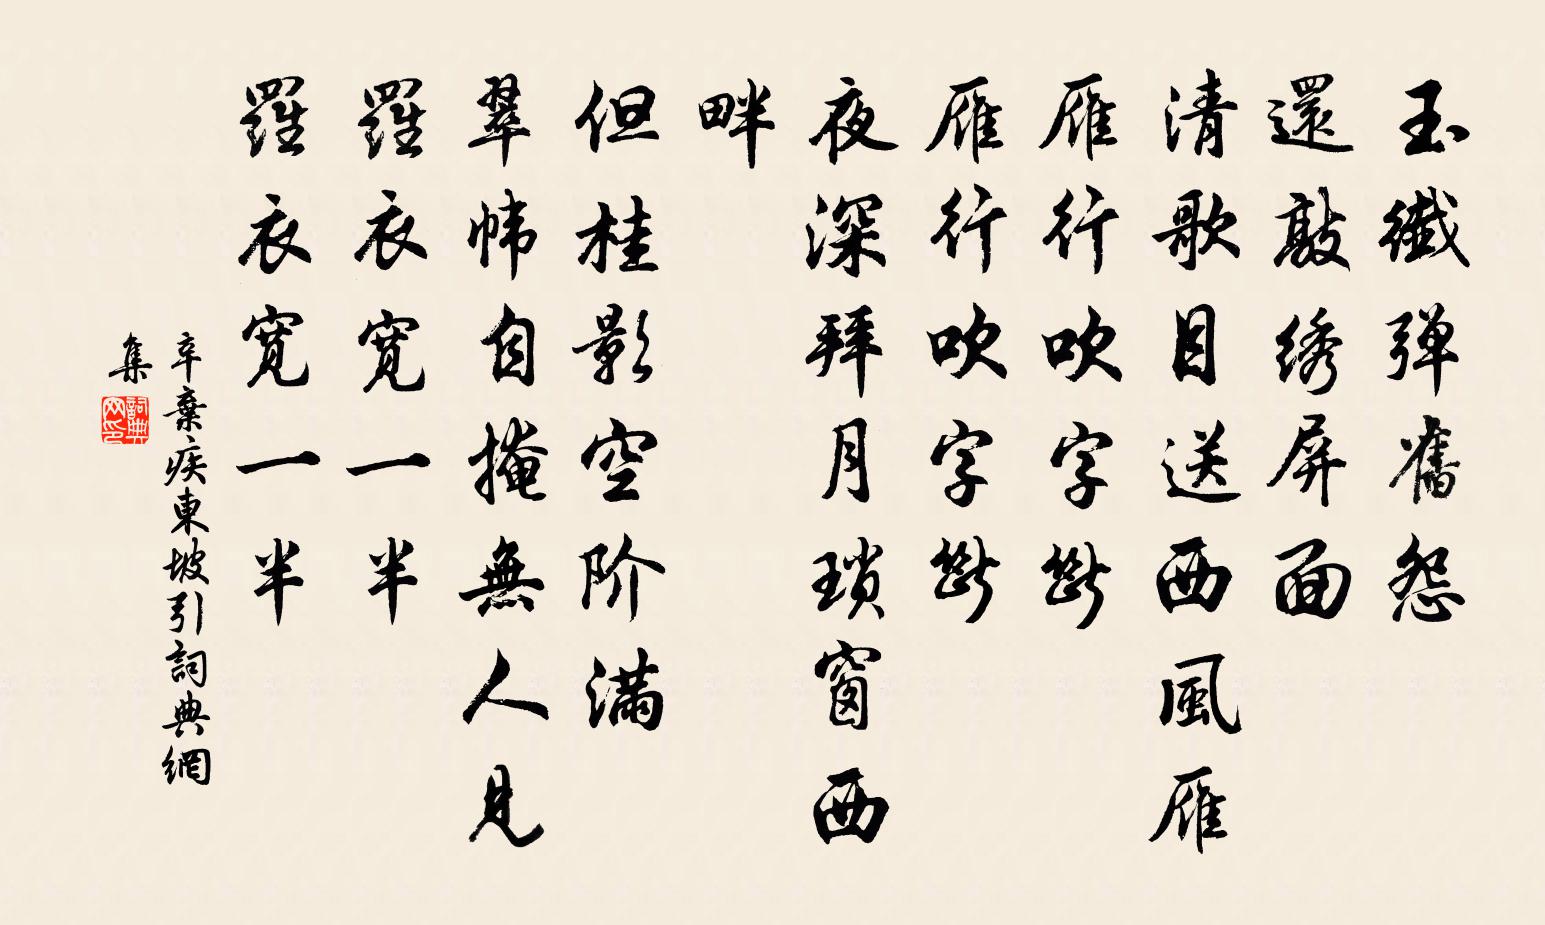 玉纖弹舊怨
還敲绣屏面
清歌目送西風雁
雁行吹字斷
雁行吹字斷
夜深拜月瑣窗西
畔
但桂影空阶满
翠帏自掩無人見
羅衣寬一半
羅衣寬一半
辛棄疾東坡引詞典網
集
詞典
网印